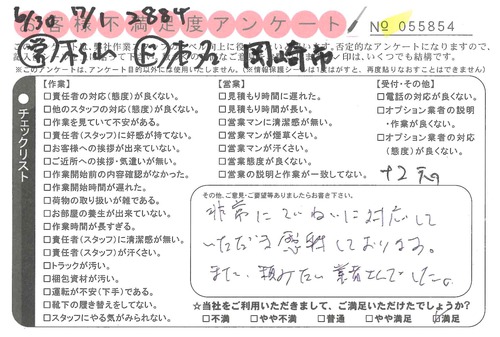 6/30 7/1 2884
お客様不満足度アンケート
№ 055854
岡崎市
※このアンケートは、アンケート目的以外になりません。(※情報保護シールは1度がすと、再度貼りなおすことはできません)
チェックリスト
【作業】
□責任者の対応(態度)が良くない。
□他のスタッフの対応(態度)が良くない。
□作業を見ていて不安がある。
□責任者(スタッフ)に好感が持てない。
□お客様への挨拶が出来ていない。
□ご近所への挨拶・気遣いが無い。
□作業開始前の内容確認がなかった。
□作業開始時間が遅れた。
□荷物の取り扱いが雑である。
□お部屋の養生が出来ていない。
□作業時間が長すぎる。
□責任者(スタッフ)に清潔感が無い。
□責任者(スタッフ)が汗くさい。
□トラックが汚い。
□梱包資材が汚い。
□運転が不安(下手)である。
□靴下の履き替えをしてない。
□スタッフにやる気がみられない。
【営業】
□見積もり時間に遅れた。
□見積もり時間が長い。
□営業マンに清潔感が無い。
□営業マンが煙草くさい。
□営業マンが汗くさい。
□営業態度が良くない。
□営業の説明と作業が一致してない。
【受付・その他】
□電話の対応が良くない。
□オプション業者の説明
・作業が良くない。
□オプション業者の対応
(態度)が良くない。
その他、ご意見・ご要望等ありましたらお書き下さい。
非常にていねいに対応して
いただき感謝しております。
また、頼みたい業者さんでした。
☆当社をご利用いただきまして、ご満足いただけたでしょうか?
□不満 □やや不満 □普通 □やや満足 ☑満足